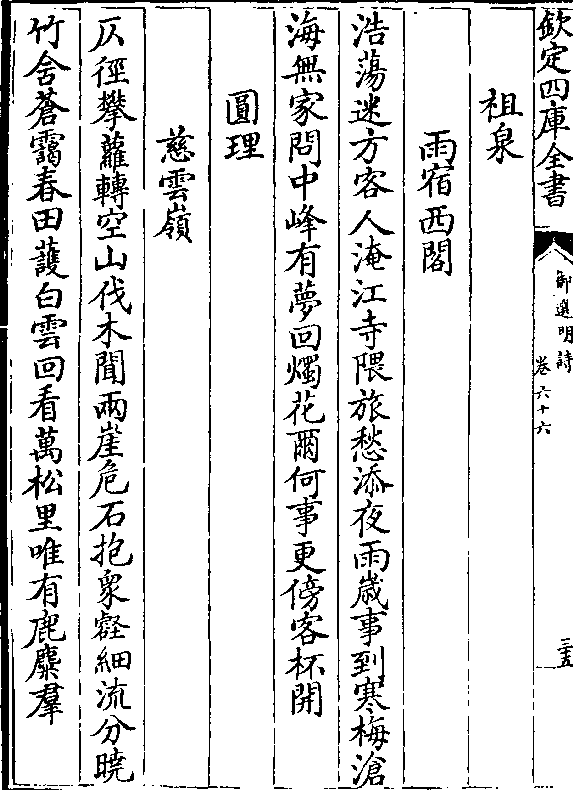 欽定四庫全書
御選明詩
卷六十六
三五
祖泉
雨宿西閣
浩蕩迷方客人淹江寺隈旅愁添夜雨歳事到寒梅滄
海無家問中峰有夢回燭花爾何事更傍客杯開
圓理
慈雲嶺
仄徑攀蘿轉空山伐木聞兩崖危石抱衆壑細流分曉
竹舎蒼靄春田護白雲回看萬松里唯有鹿麋羣